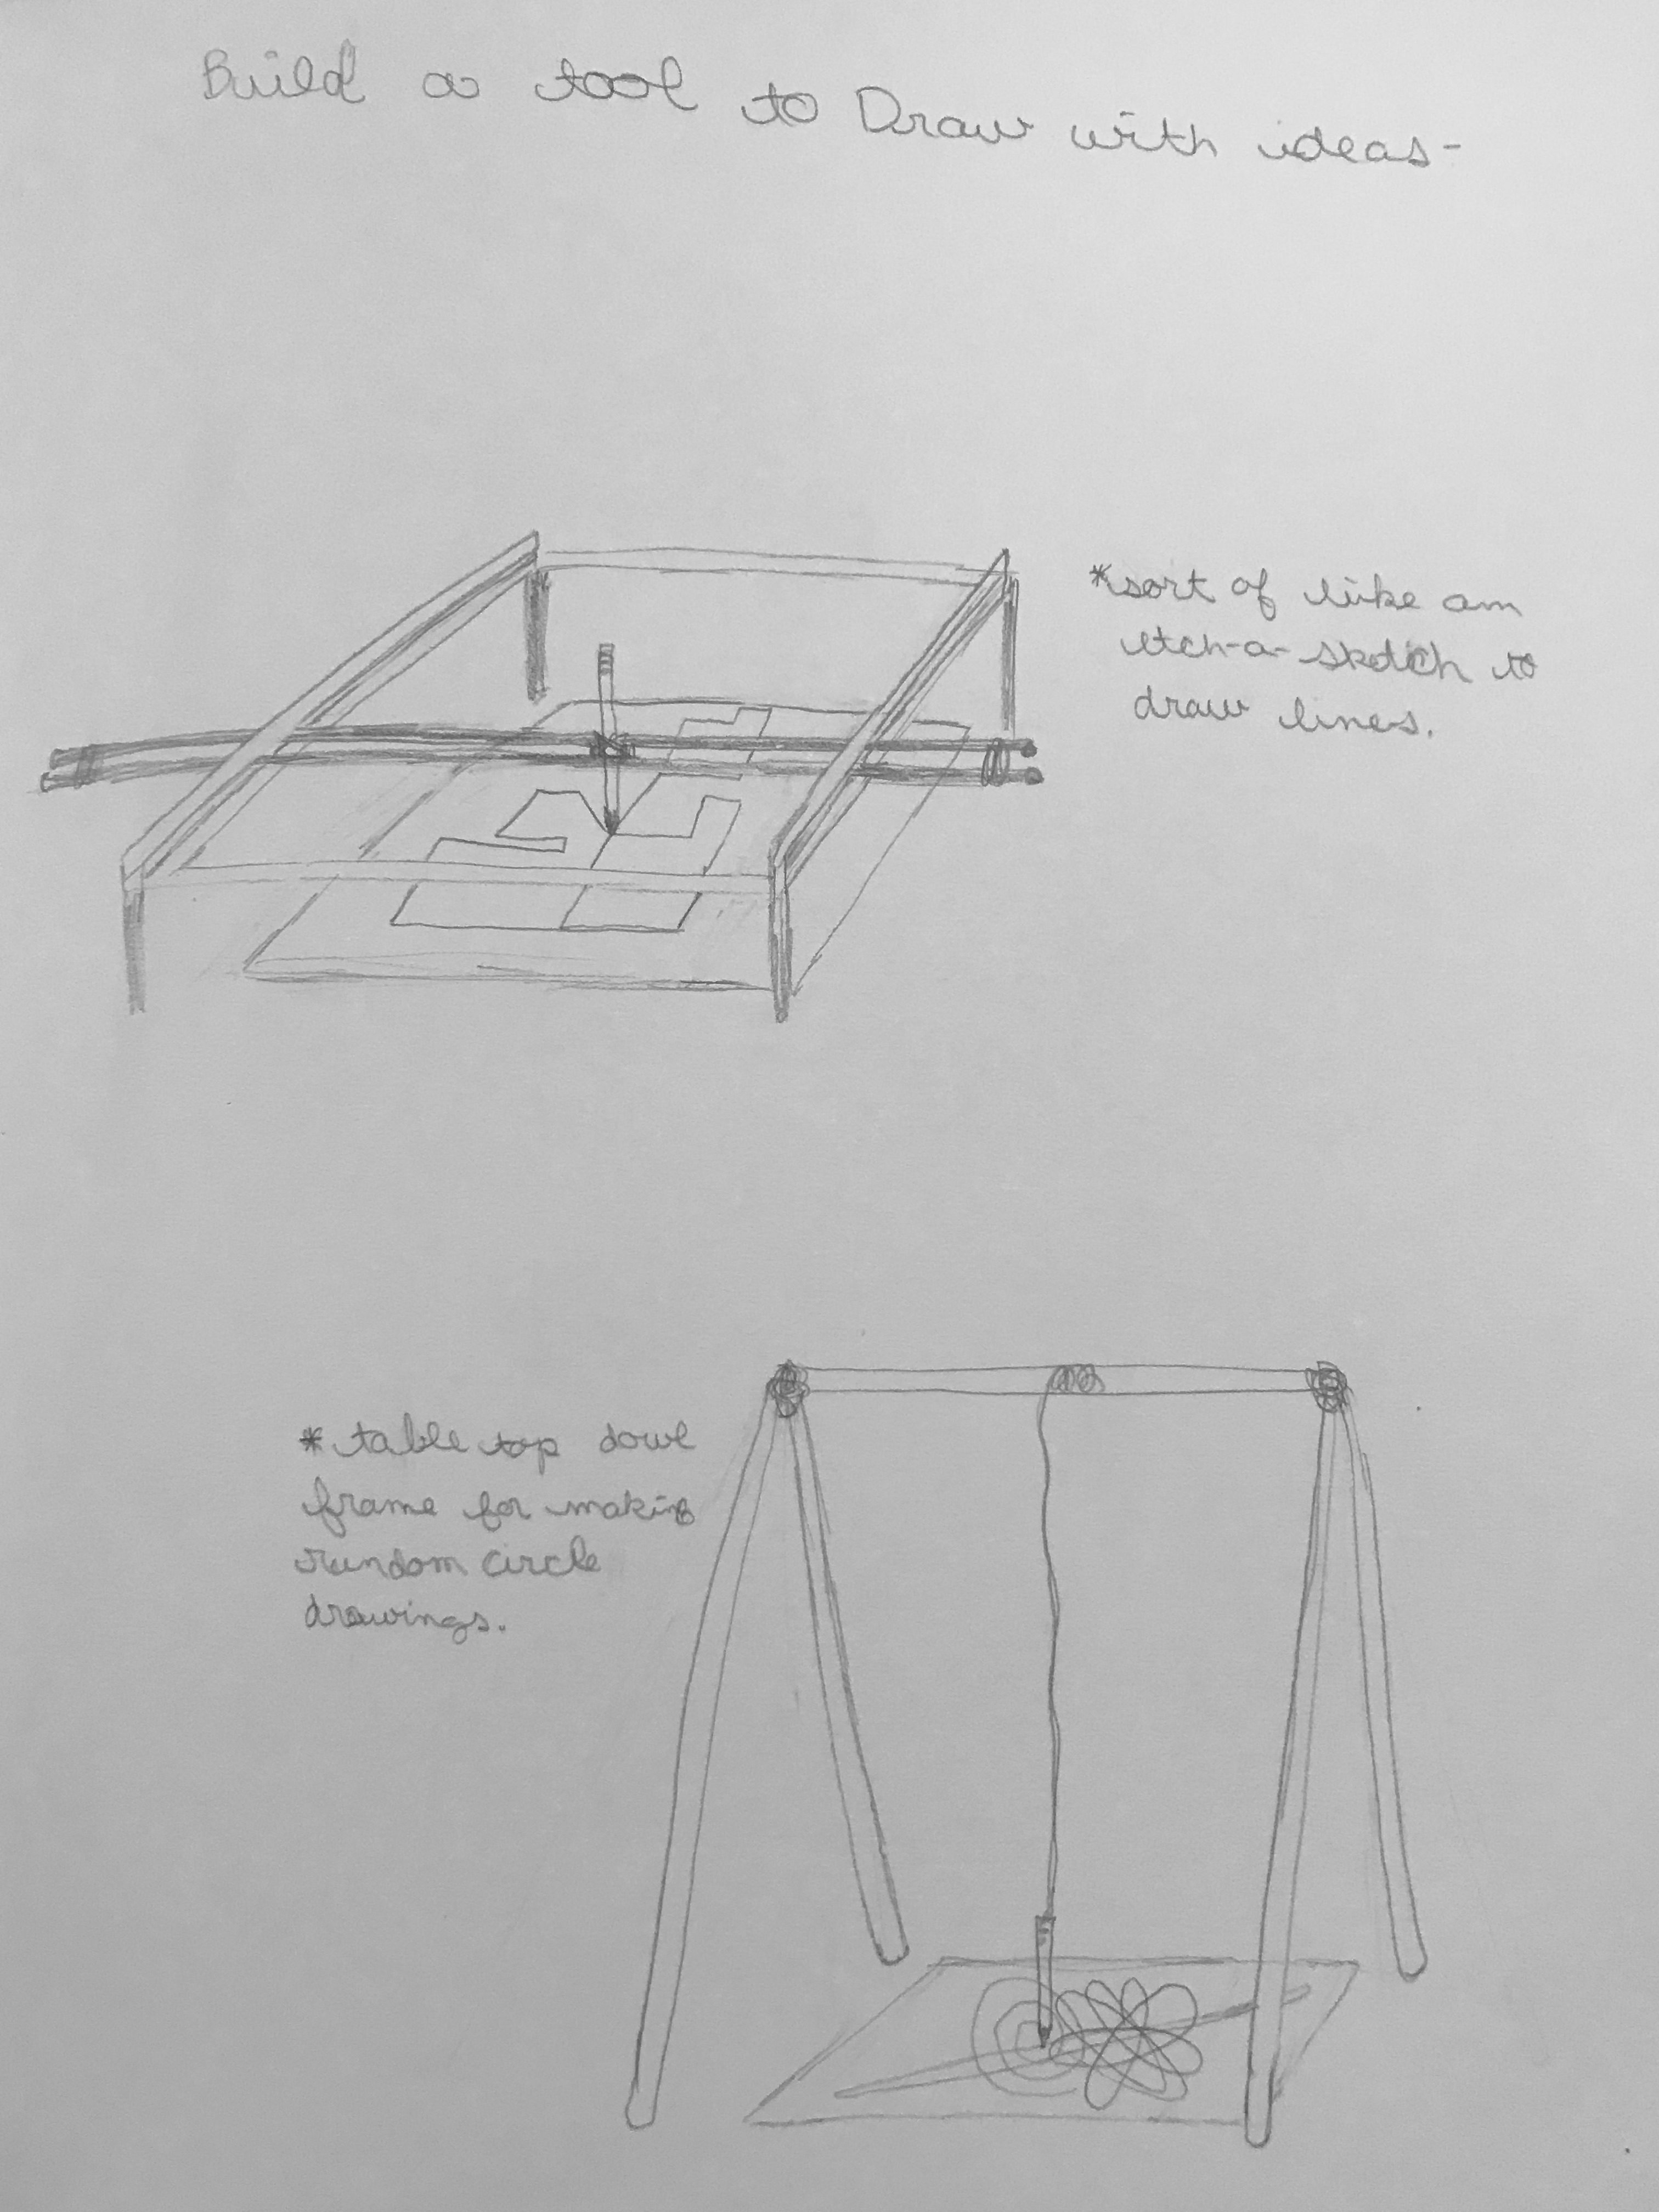 Build a tool to Draw with ideas-
*sort of like an
etch-a-sketch to
draw lines.
*table top dowl
frame for making
random circle
drawings.